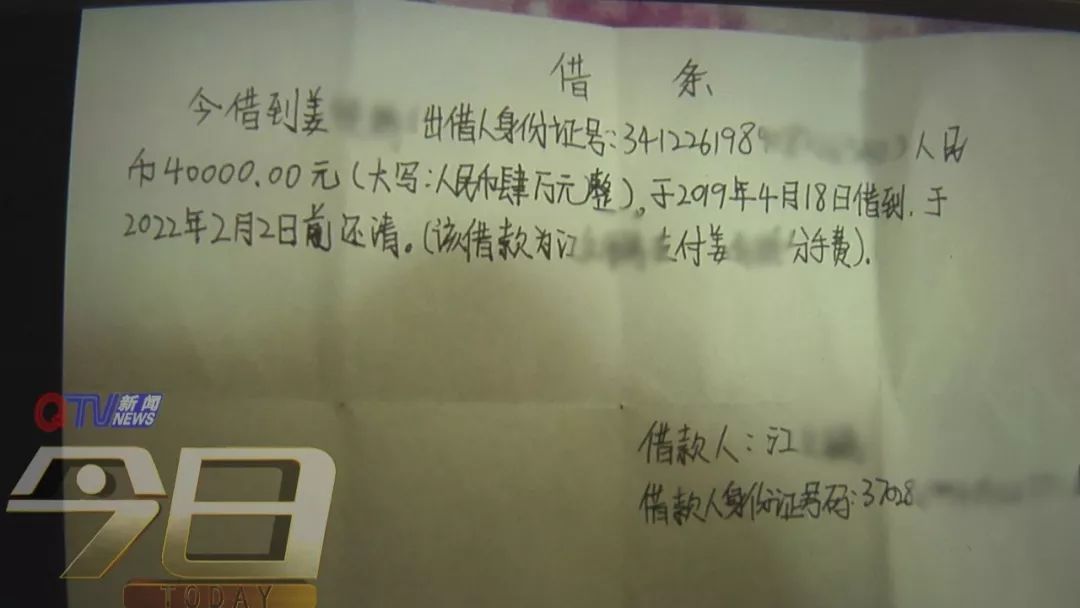 借 条
今借到姜 出借人身份证号:34122619 8 人民
币40000.00元(大写:人民币肆万元整)。于2019年4月18日借到,于
2022年2月2日前还清。(该借款为江 支付姜 分手费).
借款人:江
借款人身份证号码:37028
QTV新闻
NEWS
今日
TODAY